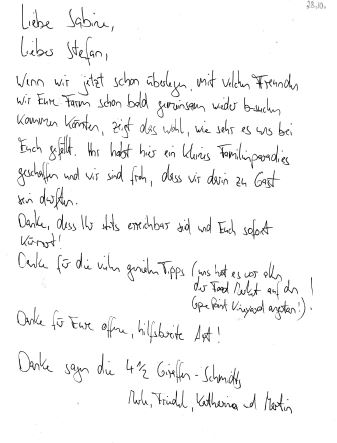 28.10.
Liebe Sabine,
Lieber Stefan,
Wenn wir jetzt schon überlegen, mit welchen Freunden
wir Eure Farm schon bald gemeinsam wieder besuchen
kommen könnten, zeigt das wohl, wie sehr es uns bei
Euch gefällt. Ihr habt hier ein kleines Familienparadies
geschaffen und wir sind froh, dass wir darin zu Gast
sein durften.
Danke, dass Ihr stets erreichbar seid und Euch sofort
kümmert!
Danke für die vielen genialen Tipps (uns hat es vor allem
der Food Market auf dem
Cape Point Vineyard angetan!)!
Danke für Eure offene, hilfsbereite Art!
Danke sagen die 4 1/2 Giraffen-Schmidts
Katharina und Martin